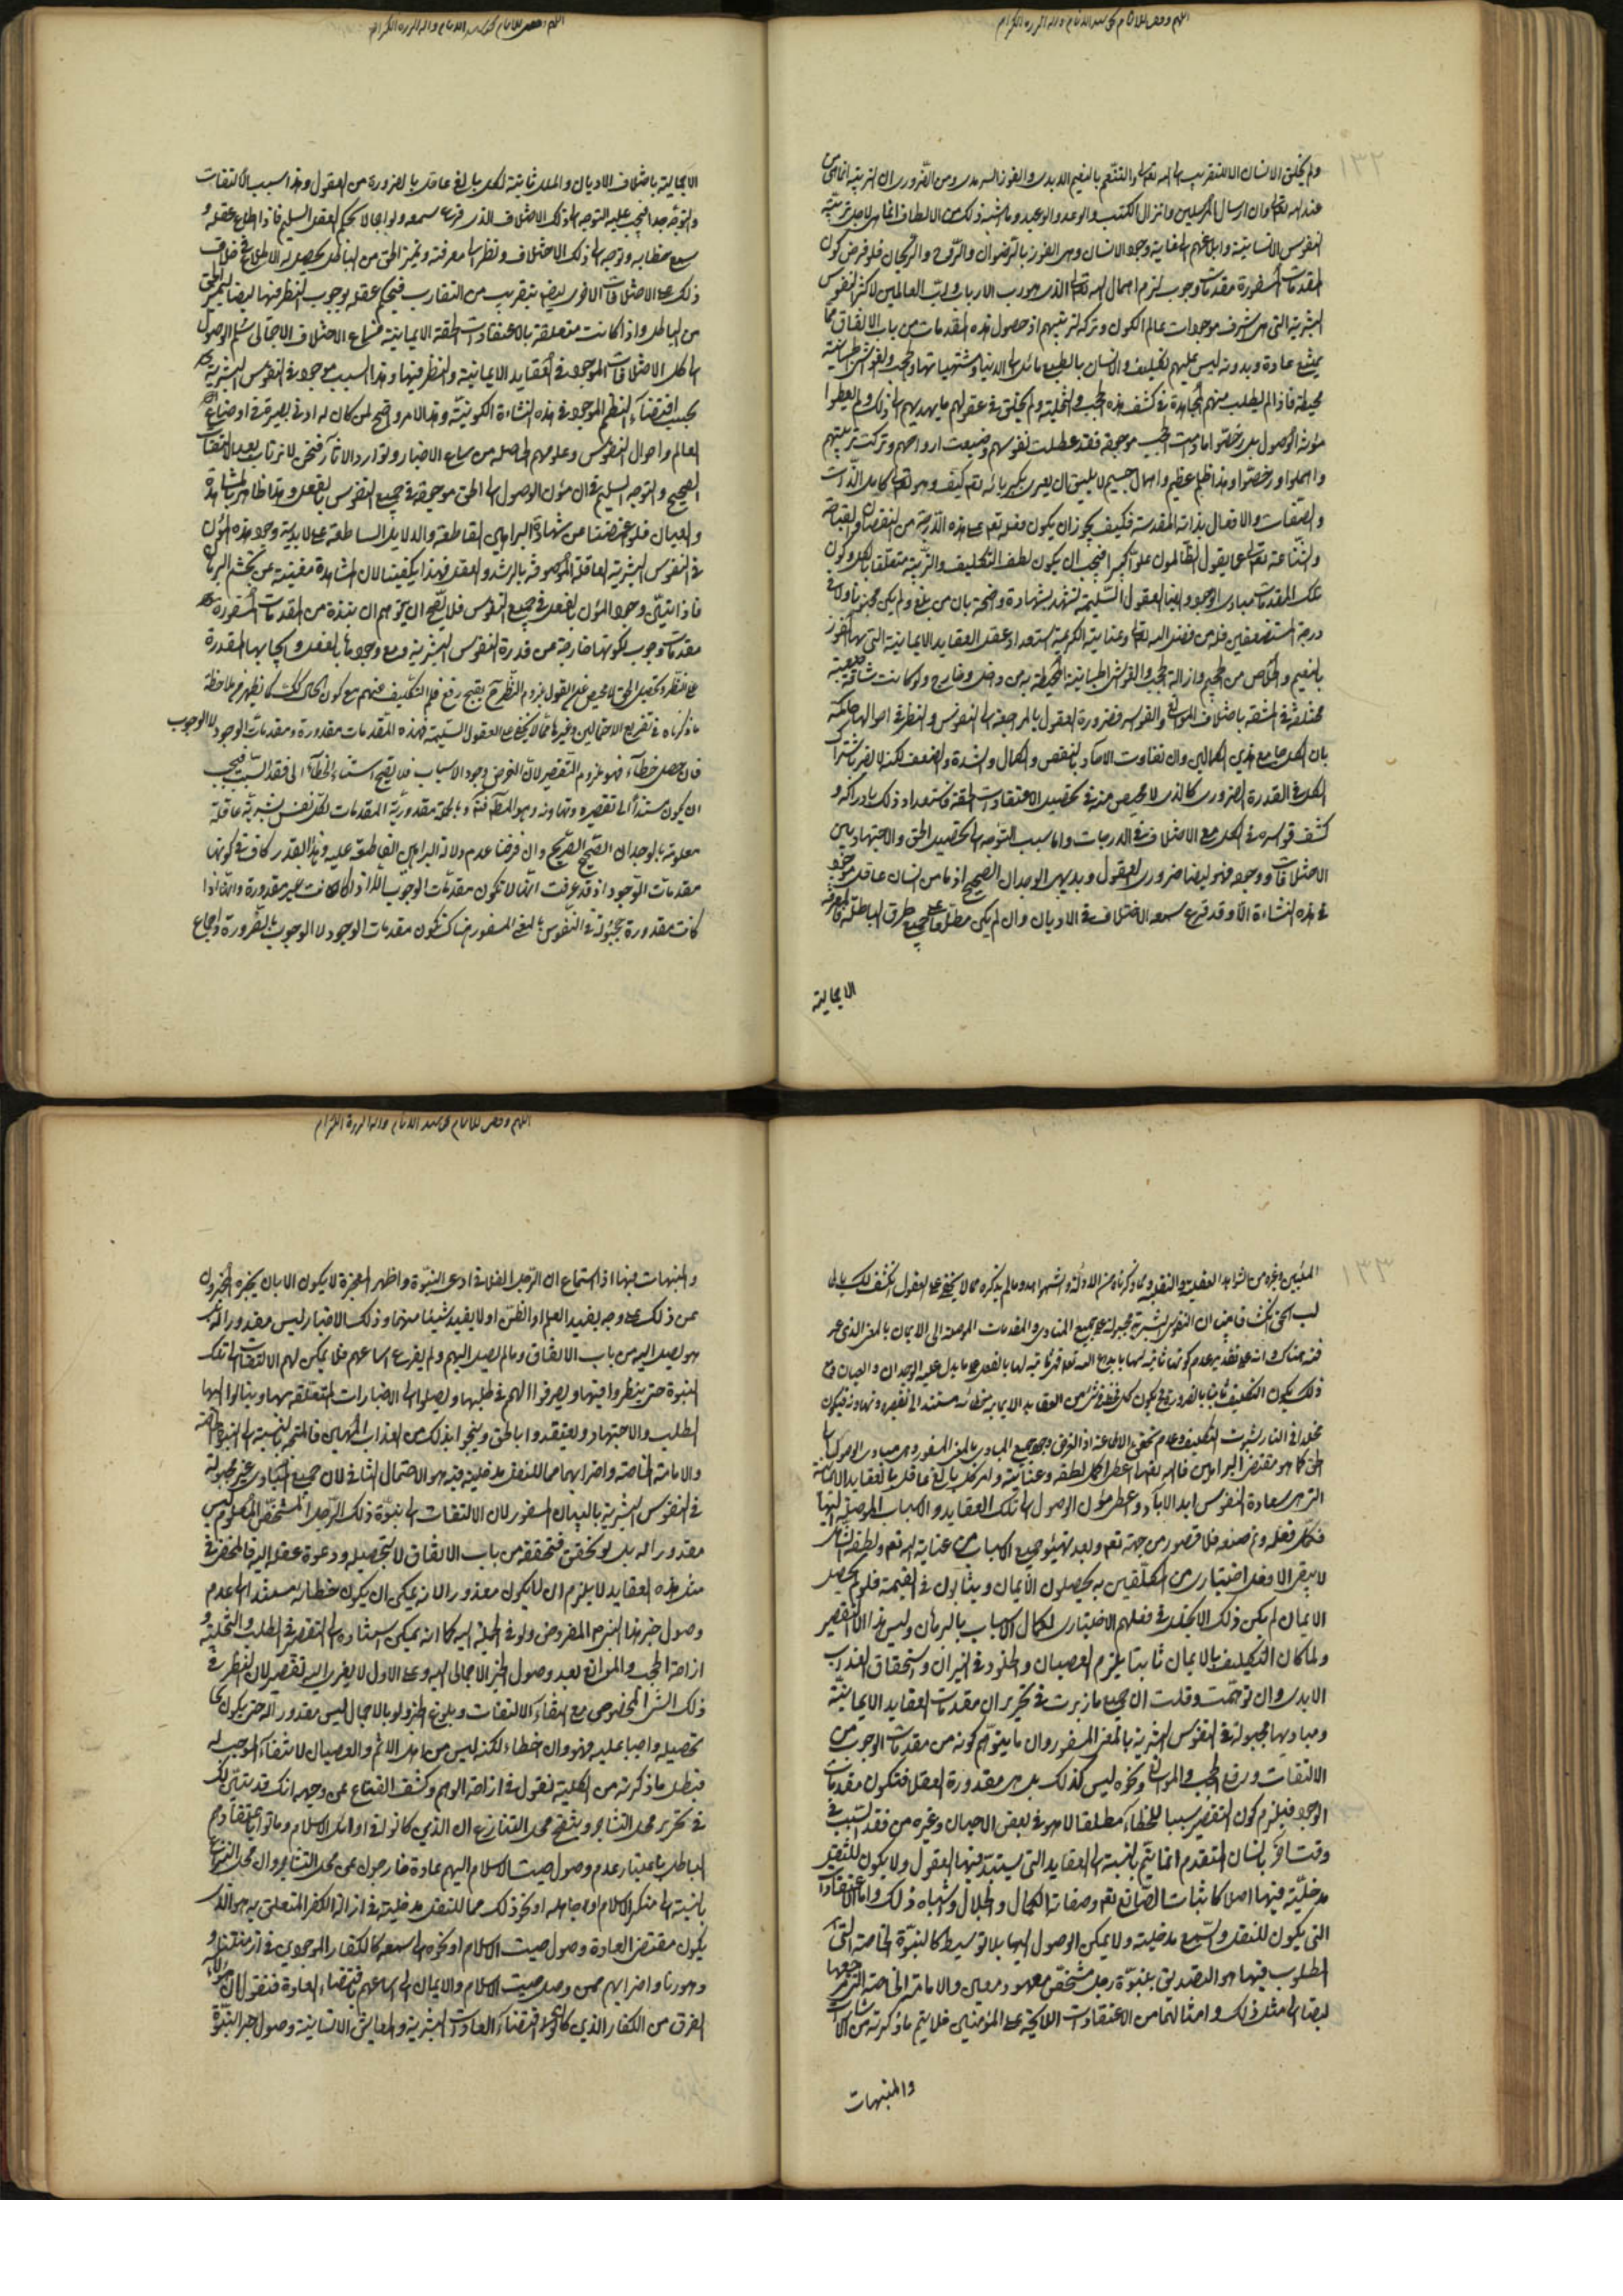 ولم يخلق الانسان الا للتقرب الى الله تعالى والتنعم بالنعيم الابدي والفوز السرمدي ومن الضروري ان التربية انما هي من
عند الله تعالى وان ارسال المرسلين وانزال الكتب والوعد والوعيد وما اشبه ذلك من الالطاف انما هي لاجل تربية
النفوس الانسانية وابلاغهم الى غاية وجود الانسان وهي الفوز بالرضوان والروح والريحان فلو فرض كون
المقدمات المسفورة مقدمات وجوب لزم اهمال الله تعالى الذي هو رب الارباب ورب العالمين لاكثر النفوس
البشرية التي هي اشرف موجودات عالم الكون وتركه لتربيتهم اذ حصول هذه المقدمات من باب الاتفاق مما
يمتنع عادة وبدونه ليس عليهم تكليف والانسان بالطبع مائل الى الدنيا ومشتهياتها والحجب والغواشي الظلمانية
محيطة فاذا لم يطلب منهم المجاهدة في كشف هذه الحجب والتخلية ولم يخلق في عقولهم ما يهديهم الى ذلك ولم يعطوا
مؤنة الوصول بل رخصوا ما دامت الحجب موجودة فقد عطلت نفوسهم وضيعت ارواحهم وتركت تربيتهم
واهملوا ورخصوا وهذا ظلم عظيم واهمال جسيم لا يليق ان يعزى بكبريائه تعالى كيف وهو تعالى كامل الذات
والصفات والافعال بذاته المقدسة فكيف يجوز ان يكون فعله تعالى على هذه الدرجة من النقصان والقباحة
والشناعة تعالى عما يقول الظالمون علوا كبيرا فيجب ان يكون لطف التكليف والتربية متعلقا بالكل وكون
تلك المقدمات مبادي الوجود وايضا العقول السليمة تشهد بشهادة واضحة بان من بلغ ولم يكن مجنونا ولا في
درجة المستضعفين فله من فضل الله تعالى وعنايته الكريمة استعداد عقد العقايد الايمانية التي بها الفوز
بالنعيم والخلاص من الجحيم وازالة الحجب والغواشي الجسمانية المحيطة به من داخل وخارج ولو كانت شاقة صعبة
مختلفة في المشقة باختلاف الموانع والقواسر فضرورة العقول بالمراجعة الى النفوس والنظر في احوالها حاكمة
بان الكل جامع هذين الكمالين وان تفاوت الاحاد بالنقص والكمال والشدة والضعف لكنه لا يضر باشتراك
الكل في القدرة الضروري كالذي لا محيص منه في تحصيل الاعتقادات الحقة فاستعداد ذلك بادراكه و
كشف قواسره في الكل مع الاختلاف في الدرجات واما سبب التوجه الى تحصيل الحق والاجتهاد بين
الاختلافات ووجوده فهو ايضا ضروري العقول وبديهي الوجدان الصحيح اذ ما من انسان عاقل موجود
في هذه النشاءة الا وقد قرع سمعه الاختلاف في الاديان وان لم يكن مطلعا على جميع طرق الباطلة فالمعرفة
الاجمالية
الاجمالية باختلاف الاديان والملل ثابتة لكل بالغ عاقل بالضرورة من العقول وهذا سبب الالتفات
والتوجه فيجب عليه التوجه الى ذلك الاختلاف الذي قرع سمعه ولو اجمالا كحكم العقل السليم فاذا طلع عقله و
سمع خطابه وتوجه الى ذلك الاختلاف ونظر الى معرفته وتميز الحق من الباطل يحصل له الاطلاع في خلاف
ذلك على الاختلافات الاخرى ايضا بتقريب من التقارب فيحكم عقله بوجوب النظر فيها ايضا لتميز الحق
من الباطل واذا كانت متعلقة بالاعتقادات الحقة الايمانية فسماع الاختلاف الاجمالي سلم الوصول
الى كل الاختلافات الموجودة في العقايد الايمانية والنظر فيها وهذا السبب موجود في النفوس البشرية
بحسب اقتضاء النظم الموجود في هذه النشاءة الكونية وهذا الامر واضح لمن كان له ادنى بصيرة في اوضاع
العالم واحوال النفوس وعلومهم الحاصلة من سماع الاخبار وتوارد الاثار فنحن لا نرتاب بعد الالتفات
الصحيح والتوجه السليم في ان مؤن الوصول الى الحق موجودة في جميع النفوس بالفعل وهذا ظاهر بالمشاهدة
والعيان فلو اغمضنا عن شهادة البراهين القاطعة والدلايل الساطعة على لابدية وجود هذه المؤن
في النفوس البشرية العاقلة الموصوفة بالرشد والعقل فهذا يكفينا لان المشاهدة مغنية عن تجشم البرهان
فاذا تبين وجود المؤن بالفعل في جميع النفوس فلا يتجه ان يتوهم ان نبذة من المقدمات المسفورة
مقدمات وجوب لكونها خارجة من قدرة النفوس البشرية ومع وجودها بالفعل وايجابها المقدرة
على النظر وتحصيل الحق لا محيص عن القول بلزوم النظر ح يقبح رفع قلم التكليف عنهم مع كون الحال كذلك كما يظهر فيما لاحظه
ما ذكرناه في تقريع الاحتمالين وغيرها مما لا يخفى على العقول السليمة فهذه المقدمات مقدورة ومقدمات الوجود لا الوجوب
فان حصل خطاء فهو ملزوم التقصير لان الفرض وجود الاسباب فلا يصح استناد الخطاء الى فقد السبب فيجب
ان يكون مستندا الى تقصيره وتهاونه وهو المطلوب وبالجملة مقدورية المقدمات لكل نفس بشرية عاقلة
معلومة بالوجدان الصحيح الصريح وان فرضنا عدم دلالة البراهين القاطعة عليه وهذا القدر كاف في كونها
مقدمات الوجود اذ قد عرفت انها لا تكون مقدمات الوجوب الا اذا كانت غير مقدورة واما اذا
كانت مقدورة مجبولة في النفوس بالمعنى المسفور هناك فتكون مقدمات الوجود لا الوجوب بالضرورة واجماع
المليين وغيره من الشواهد العقلية والنقلية وما ذكرناه من الادلة والشواهد وما لم نذكره مما لا يخفى على العقول تكشف لك بان
لب الحق انكشافا مبينا ان النفوس البشرية مجبولة على جميع المبادي والمقدمات الموصلة الى الايمان بالمعنى الذي مر
وانه على تقدير عدم كونها ثابتة لها بالفعل على ما يدل عليه الوجدان والعيان فمع
ذلك يكون التكليف ثابتا بالضرورة في كون كل خطئ في شئ من العقايد الايمانية خطائه مستندا الى تقصيره وتهاونه فيكون
مخلدا في النار لثبوت التكليف وعدم تحقق الاطاعة اذ الفرض وجود جميع المبادي بالمعنى المسفور وهي مبادي الوصول الى
الحق كما هو مقتضى البراهين فالله تعالى اعطى بكمال لطفه وعنايته ولم يترك بالغ عاقل بالعقايد الايمانية
التي هي سعادة النفوس ابد الاباد واعطى مؤن الوصول الى تلك العقايد والاسباب الموصلة اليها
فكمل فعله وتم صنعه فلا قصور من جهته تعالى وبعد تهيئة جميع الاسباب من عناية الله تعالى ولطفه الشامل
لا يبقى الا فعل اختياري من المكلفين به يحصلون الايمان ويثابون في القيمة فلو لم يحصل
الايمان لم يكن ذلك الا بخلل في فعلهم الاختياري لكمال الاسباب بالبرهان وليس هذا الا التقصير
ولما كان التكليف بالايمان ثابتا يلزم العصيان والخلود في النيران واستحقاق العذاب
الابدي وان توهمت وقلت ان جميع ما زبرت في تحرير ان مقدمات العقايد الايمانية
ومباديها مجبولة في النفوس البشرية بالمعنى المسفور وان ما يتوهم كونه من مقدمات الوجوب من
الالتفات ورفع الحجب والموانع ونحوه ليس كذلك بل هي مقدورة العقل فتكون مقدمات
الوجود فيلزم كون التقصير سببا للخطاء مطلقا لا هو في بعض الاحيان وغيره من فقد السبب في
وقت آخر بالبيان المتقدم انما يتم بالنسبة الى العقايد التي يستبد فيها العقول ولا يكون للنقل
مدخلية فيها اصلا كاثبات الصانع تعالى وصفاته الكمال والجلال واشباه ذلك واما الاعتقادات
التي يكون للنقل والسمع مدخلية ولا يمكن الوصول اليها بلا توسيط كالنبوة الخاصة التي
المطلوب فيها هو التصديق بنبوة رجل مشخص معهود معين والامامة الخاصة التي مرجعها
ايضا الى مثل ذلك وامثالهما من الاعتقادات اللايحة على المؤمنين فلا يتم ما ذكرته من الاشارات
والمنبهات
والمنبهات فيها اذ استماع ان الرجل الفلاني ادعى النبوة واظهر المعجزة لا يكون الا بان يخبره المخبرون
عن ذلك على وجه يفيد العلم او الظن او لا يفيد شيئا منهما وذلك الاخبار ليس مقدورا له بل
هو يصل اليه من باب الاتفاق وما لم يصل اليهم ولم يقرع اسماعهم فلا يمكن لهم الالتفات الى تلك
النبوة حتى ينظروا فيها ويصرفوا الهم في طلبها ويصلوا الى الاخبارات المتعلقة بها وينالوا بها
الطلب والاجتهاد ويعتقدوا بالحق وينجوا بذلك من العذاب المهين فالمتجه بالنسبة الى النبوة الخاصة
والامامة الخاصة واضرابهما مما للنقل مدخلية فيه هو الاحتمال الثاني لان جميع المبادي غير مجبولة
في النفوس البشرية بالبيان المسفور لان الالتفات الى نبوة ذلك الرجل المشخص المعلوم ليس
مقدورا له بل لو تحقق فتحققه من باب الاتفاق لا بتحصيله ودعوة عقله اليه فالمخطئ في
مثل هذه العقايد لا يلزم ان لا يكون معذورا لانه يمكن ان يكون خطائه مستندا الى عدم
وصول خبر هذا النبي المفروض ولو في الجملة اليه كما انه يمكن استناده الى التقصير في الطلب والتخلية و
ازاحة الحجب والموانع بعد وصول الخبر الاجمالي اليه وعلى الاول لا يعزى اليه تقصير لان النظر في
ذلك الشئ المخصوص مع انتفاء الالتفات وبلوغ الخبر ولو بالاجمال ليس مقدورا له حتى يكون
تحصيله واجبا عليه فهو وان اخطاء لكنه ليس من اهل الاثم والعصيان لانتفاء الموجب له
فبطل ما ذكرته من الكلية نقول في ازاحة الوهم وكشف القناع عن وجهه انك قد تبين لك
في تحرير محل التشاجر وتنقيح محل التنازع ان الذين كانوا في اوائل الاسلام وماتوا على عقايدهم
الباطل باعتبار عدم وصول صيت الاسلام اليهم عادة خارجون عن محل التشاجر وان محل النزاع
بالنسبة الى منكر الاسلام او جاهله او نحو ذلك مما للنقل مدخلية في ازالة الكفر المتعلق به هو الذي
يكون مقتضى العادة وصول صيت الاسلام او نحوه الى سمعه كالكفار الموجودين في ازمنتنا و
دهورنا واضرابهم ممن وصل صيت الاسلام والايمان الى اسماعهم باقتضاء العادة فنقول ان هؤلاء
الفرق من الكفار الذين كان اقتضاء العادات البشرية والمعايش الانسانية وصول خبر النبوة